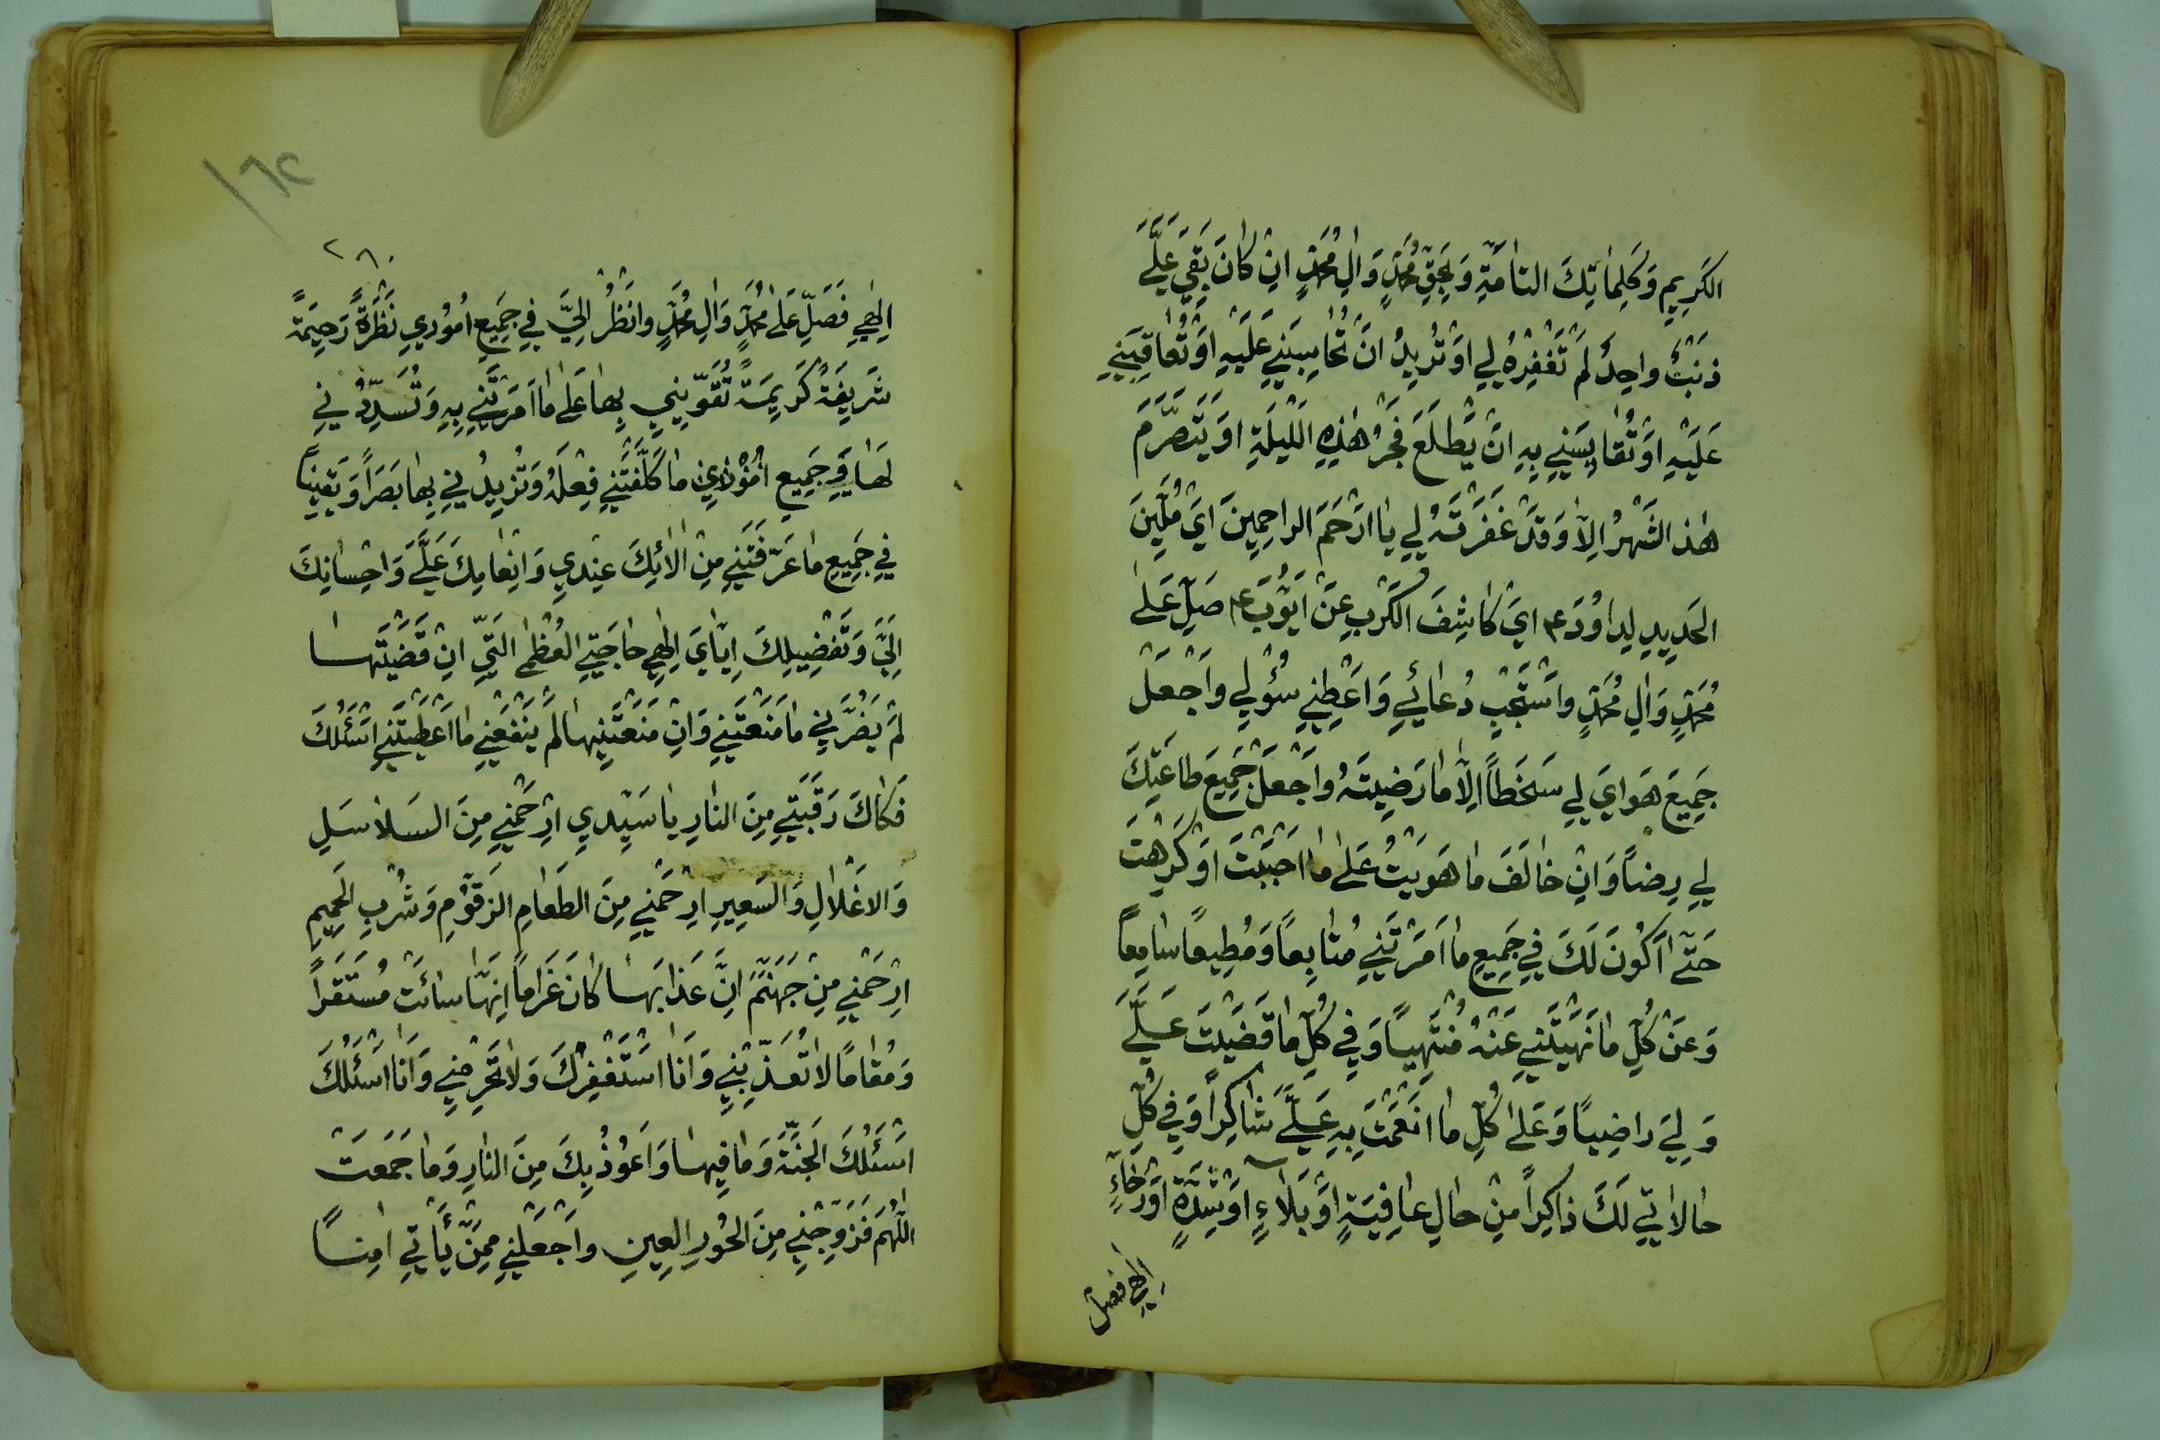 الكَرِيمِ وَكَلِماتِكَ التامَّةِ وَبِحَقِّ مُحَمَّدٍ وَالِ مُحَمَّدٍ اِنْ كانَ بَقِيَ عَلَيَّ
ذَنْبٌ واحِدٌ لَمْ تَغْفِرْهُ لِي اَوْ تُرِيدُ اَنْ تُحاسِبَنِي عَلَيْهِ اَوْ تُعاقِبَنِي
عَلَيْهِ اَوْ تُقايِسَنِي بِهِ اَنْ يَطْلَعَ فَجْرُ هٰذِهِ اللَّيْلَةِ اَوْ يَتَصَرَّمَ
هٰذا الشَّهْرُ اِلّا وَقَدْ غَفَرْتَهُ لِي يا اَرْحَمَ الراحِمِينَ اَيْ مُلَيِّنَ
الحَدِيدِ لِداوُدَ ع اَيْ كاشِفَ الكَرْبِ عَنْ اَيُّوبَ ع صَلِّ عَلىٰ
مُحَمَّدٍ وَالِ مُحَمَّدٍ واسْتَجِبْ دُعائِي وَاَعْطِنِي سُؤْلِي واجْعَلْ
جَمِيعَ هَوايَ لِي سَخَطاً اِلّا ما رَضِيتَهُ واجْعَلْ جَمِيعَ طاعَتِكَ
لِي رِضاً وَاِنْ خالَفَ ما هَوَيْتُ عَلىٰ ما اَحْبَبْتَ اَوْ كَرِهْتَ
حَتّىٰ اَكُونَ لَكَ فِي جَمِيعِ ما اَمَرْتَنِي مُتابِعاً وَمُطِيعاً سامِعاً
وَعَنْ كُلِّ ما نَهَيْتَنِي عَنْهُ مُنْتَهِياً وَفِي كُلِّ ما قَضَيْتَ عَلَيَّ
وَلِيَ راضِياً وَعَلىٰ كُلِّ ما اَنْعَمْتَ بِهِ عَلَيَّ شاكِراً وَفِي كُلِّ
حالاتِي لَكَ ذاكِراً مِنْ حالِ عافِيَةٍ اَوْ بَلاءٍ اَوْ شِدَّةٍ اَوْ رَخاءٍ
اِلٰهِي فَصَلِّ
١٦٢
٢٦٠
اِلٰهِي فَصَلِّ عَلىٰ مُحَمَّدٍ وَالِ مُحَمَّدٍ وانْظُرْ اِلَيَّ فِي جَمِيعِ اُمُورِي نَظْرَةً رَحِيمَةً
شَرِيفَةً كَرِيمَةً تُقَوِّينِي بِها عَلىٰ ما اَمَرْتَنِي بِهِ وَتُسَدِّدُنِي
لَها وَفِي جَمِيعِ اُمُورِي ما كَلَّفْتَنِي فِعْلَهُ وَتَزِيدُنِي بِها بَصَراً وَيَقِيناً
فِي جَمِيعِ ما عَرَّفْتَنِي مِنْ الائِكَ عِنْدِي وَاِنْعامِكَ عَلَيَّ وَاِحْسانِكَ
اِلَيَّ وَتَفْضِيلِكَ اِيّايَ اِلٰهِي حاجَتِي العُظْمىٰ الَّتِي اِنْ قَضَيْتَها
لَمْ يَضُرَّنِي ما مَنَعْتَنِي وَاِنْ مَنَعْتَنِيها لَمْ يَنْفَعْنِي ما اَعْطَيْتَنِي اَسْئَلُكَ
فَكاكَ رَقَبَتِي مِنَ النارِ يا سَيِّدِي اِرْحَمْنِي مِنَ السَلاسَلِ
وَالاَغْلالِ وَالسَعِيرِ اِرْحَمْنِي مِنَ الطَعامِ الزَقُّومِ وَشُرْبِ الحَمِيمِ
اِرْحَمْنِي مِنْ جَهَنَّمَ اِنَّ عَذابَها كانَ غَراماً اِنَّها سائَتْ مُسْتَقَرّاً
وَمُقاماً لا تُعَذِّبْنِي وَاَنا اَسْتَغْفِرُكَ وَلا تَحْرِمْنِي وَاَنا اَسْئَلُكَ
اَسْئَلُكَ الجَنَّةَ وَما فِيها وَاَعُوذُ بِكَ مِنَ النارِ وَما جَمَعَتْ
اللّٰهُمَّ فَزَوِّجْنِي مِنَ الحُورِ العِينِ واجْعَلْنِي مِمَّنْ يَأْتِي امِناً